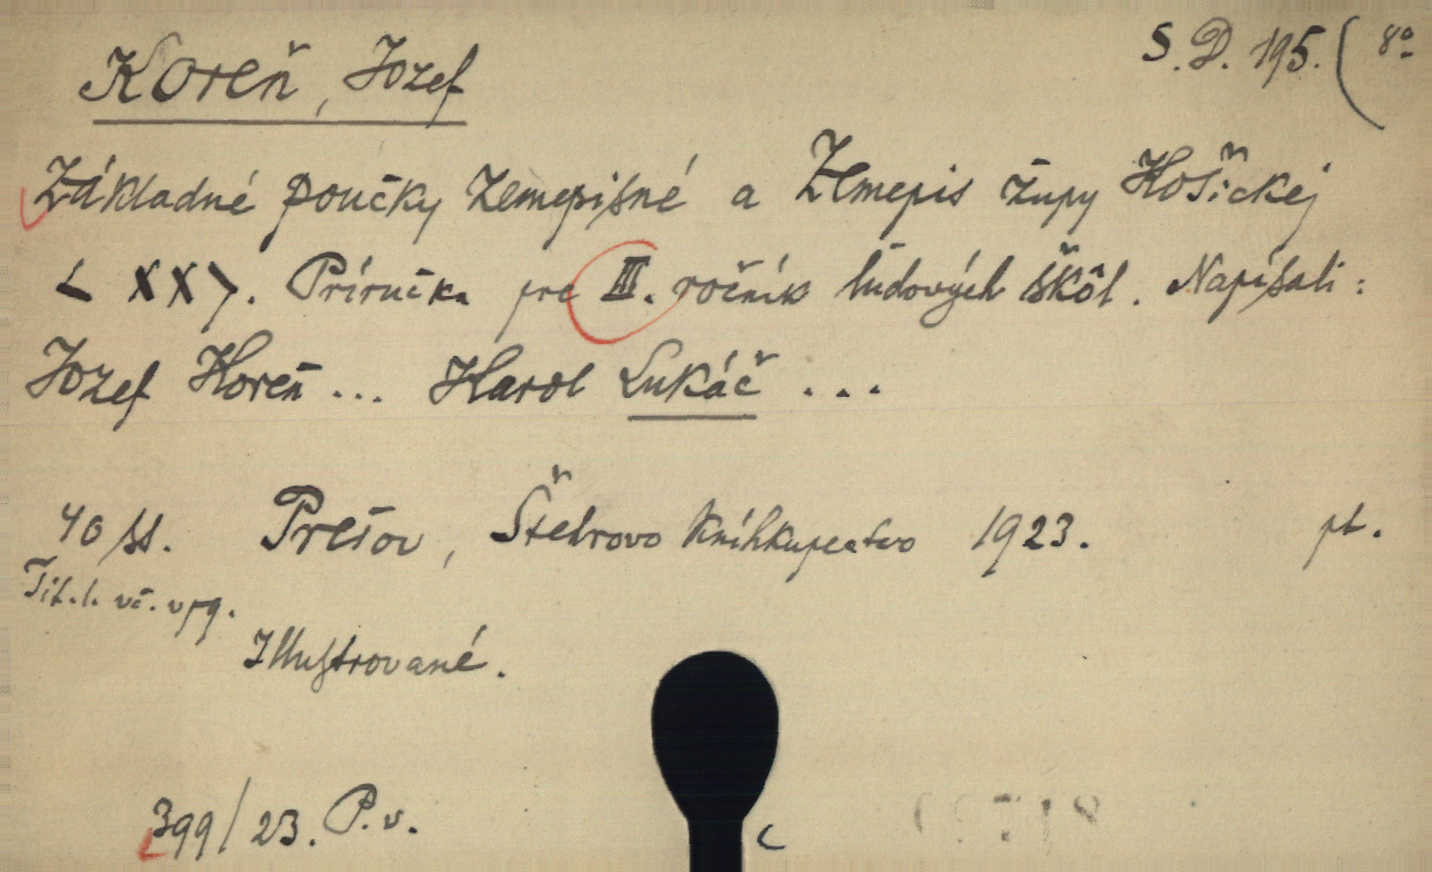 Koreň, Jozef
S. D. 195. ( 8°
Základné poučky zemepisné a Zemepis župy Košickej
< XX >. Príručka pre III. ročník ľudových škôl. Napísali:
Jozef Koreň ... Karol Lukáč ...
40 ss. Prešov, Štehrovo kníhkupectvo 1923. pt.
Tit. l. vč. v pg.
Illustrované.
399/23. P. v.